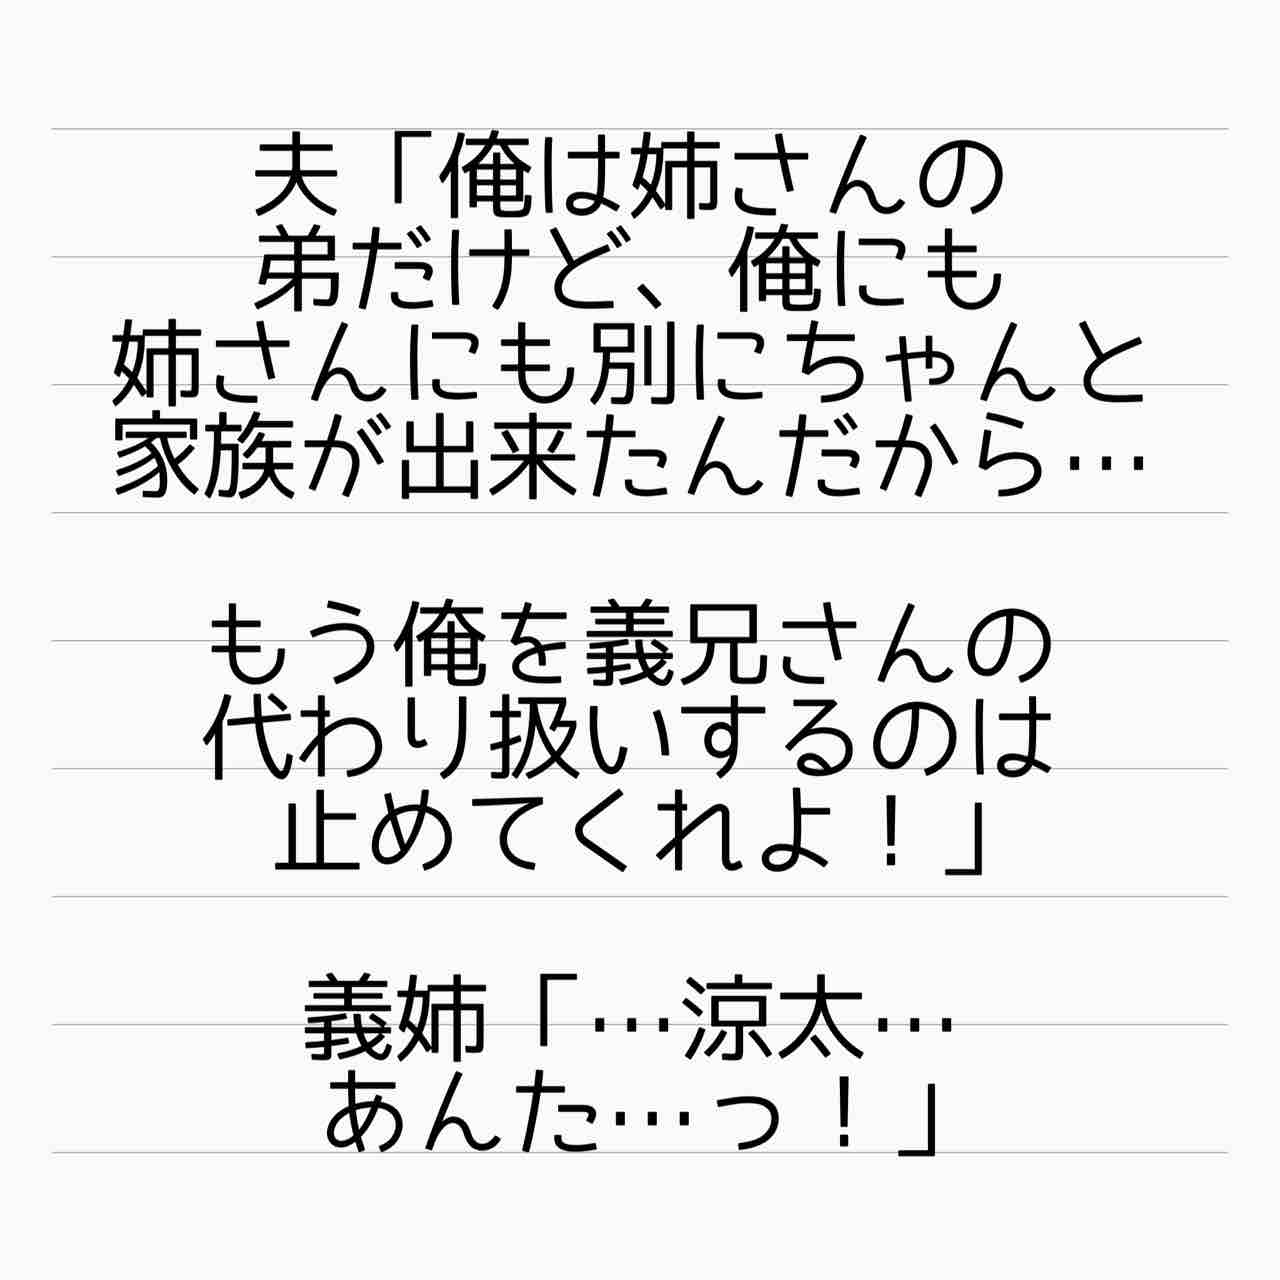 夫「俺は姉さんの
弟だけど、俺にも
姉さんにも別にちゃんと
家族が出来たんだから…
もう俺を義兄さんの
代わり扱いするのは
止めてくれよ！」
義姉「…涼太…
あんた…っ！」